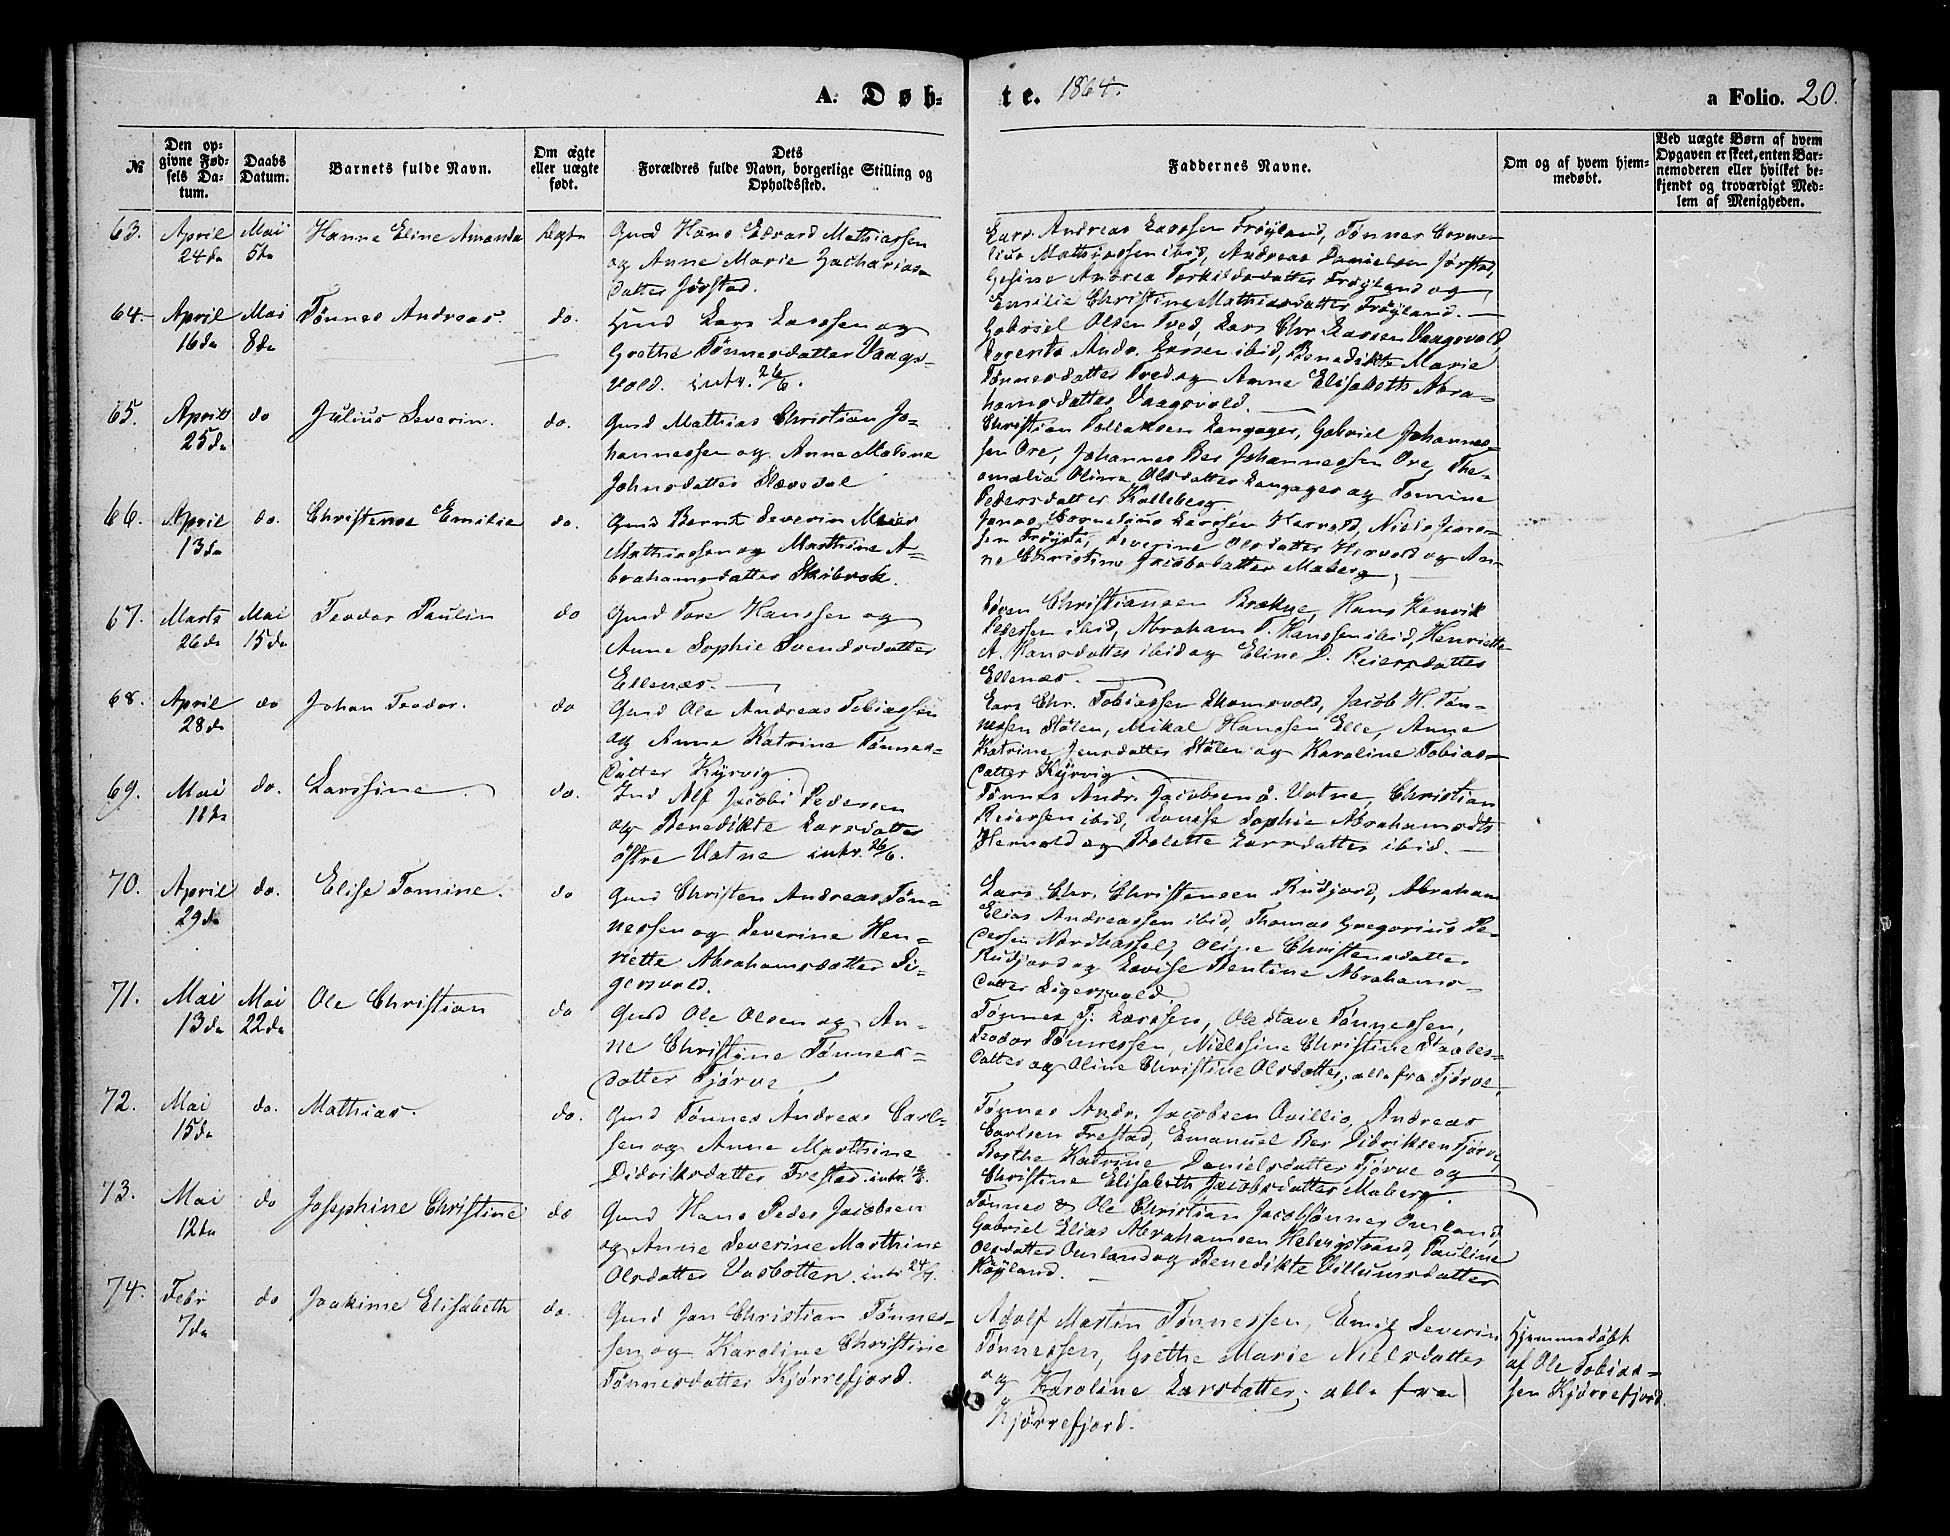 A. Døb-
te. 1864.
a Folio. 20.
№
Den op-
givne Fød-
sels Da-
tum.
Daabs
Datum.
Barnets fulde Navn.
Om ægte
eller uægte
født.
Dets
Forældres fulde Navn, borgerlige Stilling og
Opholdssted.
Faddernes Navne.
Om og af hvem hjem-
medøbt.
Ved uægte Børn af hvem
Opgaven er skeet, enten Bar-
nemoderen eller hvilket be-
kjendt og troværdigt Med-
lem af Menigheden.
63.
April
24de
Mai
5te
Hanne Eline Amanda
Ægte
Gmd Hans Edvard Mathiassen
og Anne Marie Zacharias-
datter Jørstad.
Lars Andreas Larssen Frøyland, Tønnes Corne-
lius Mathiassen ibid, Andreas Danielsen Jørstad,
Gesine Andrea Torkildsdatter Frøyland og
Emilie Christine Mathiasdatter Frøyland.
64.
April
16de
Mai
8de
Tønnes Andreas.
do.
Gmd Lars Larssen og
Grethe Tønnesdatter Vaags-
vold. intr. 26/6.
Gabriel Olsen Tved, Lars Chr Larsen Vaagsvold,
Lorents Andr. Larsen ibid, Benedikte Marie
Tønnesdatter Tved og Anne Elisabeth Abra-
hamsdatter Vaagsvold.
65.
April
25de
do
Julius Severin.
do.
Gmd Mathias Christian Jo-
hannessen og Anne Malene
Johnsdatter Slævdal
Christian Tollaksen Langager, Gabriel Johannes-
sen Ore, Johannes Ber Johannessen Ore, The-
omalia Oline Olsdatter Langager og Tomine
Pedersdatter Kalleberg.
66.
April
13de
do.
Christense Emilie
do.
Gmd Bernt Severin Meier
Mathiassen og Marthine A-
brahamsdatter Skibrok.
Jonas Cornelius Larssen Hervold, Niels Jans-
sen Frøystø, Severine Olsdatter Hervold og An-
ne Christine Jacobsdatter Maberg.
67.
Marts
26de
Mai
15de
Teodor Paulin
do
Gmd Tore Hanssen og
Anne Sophie Svendsdatter
Ellenæs.
Søren Christiansen Brække, Hans Henrik
Pedersen ibid, Abraham T. Hanssen ibid, Henriette
A. Hansdatter ibid og Eline D. Reiersdatter
Ellenæs.
68.
April
28de
do
Johan Teodor.
do
Gmd Ole Andreas Tobiassen
og Anne Katrine Tønnes-
datter Kjørvig
Lars Chr. Tobiassen Skomsvold, Jacob H. Tøn-
nessen Stølen, Mikal Hanssen Elle, Anne
Katrine Jensdatter Stølen og Karoline Tobias-
datter Kjørvig
69.
Mai
11te
do.
Larssine.
do.
Ind Alf Jacobi Pedersen
og Benedikte Larsdatter
østre Vatne intr. 26/6.
Tønnes Andr. Jacobsen ø. Vatne, Christian
Reiersen ibid, Louise Sophie Abrahamsdtr
Hervold og Bolette Larsdatter ibid.
70.
April
29de
do.
Elise Tomine.
do
Gmd Christen Andreas Tøn-
nessen og Severine Hen-
riette Abrahamsdatter Si-
gersvold.
Lars Chr. Christensen Rudjord, Abraham
Elias Andreassen ibid, Thomas Gregorius Pe-
dersen Nordhassel, Oline Christensdatter
Rudjord og Lovise Bentine Abrahams-
datter Sigersvold
71.
Mai
13de
Mai
22de
Ole Christian
do
Gmd Ole Olsen og An-
ne Christine Tønnes-
datter Tjørve
Tønnes Tj. Larssen, Ole Stave Tønnessen,
Teodor Tønnessen, Nielssine Christine Staales-
datter og Oline Christine Olsdatter, alle fra Tjørve,
72.
Mai
15de
do.
Mathias.
do.
Gmd Tønnes Andreas Carl-
sen og Anne Marthine
Didriksdatter Frestad. intr.
Tønnes Andr. Jacobsen Qvillio, Andreas
Carlsen Frestad, Emanuel Ber Didriksen Tjørve,
Berthe Katrine Danielsdatter Tjørve og
Christine Elisabeth Jacobsdatter Maberg.
73.
Mai
12te
do
Josephine Christine
do
Gmd Hans Peder Jacobsen
og Anne Severine Marthine
Olsdatter Vasbotten. intr 24/7.
Tønnes & Ole Christian Jacobsønner Omland,
Gabriel Elias Abrahamsen Helvigstrand, Pauline
Olsdatter Omland og Benedikte Villumsdatter
Røyland.
74.
Febr
7de
do
Joakime Elisabeth
do.
Gmd Jan Christian Tønnes-
sen og Karoline Christine
Tønnesdatter Kjørrefjord.
Adolf Martin Tønnessen, Emil Severin
Tønnessen, Grethe Marie Nielsdatter
og Karoline Larsdatter; alle fra
Kjørrefjord.
Hjemmedøbt
af Ole Tobias-
sen Kjørrefjord.